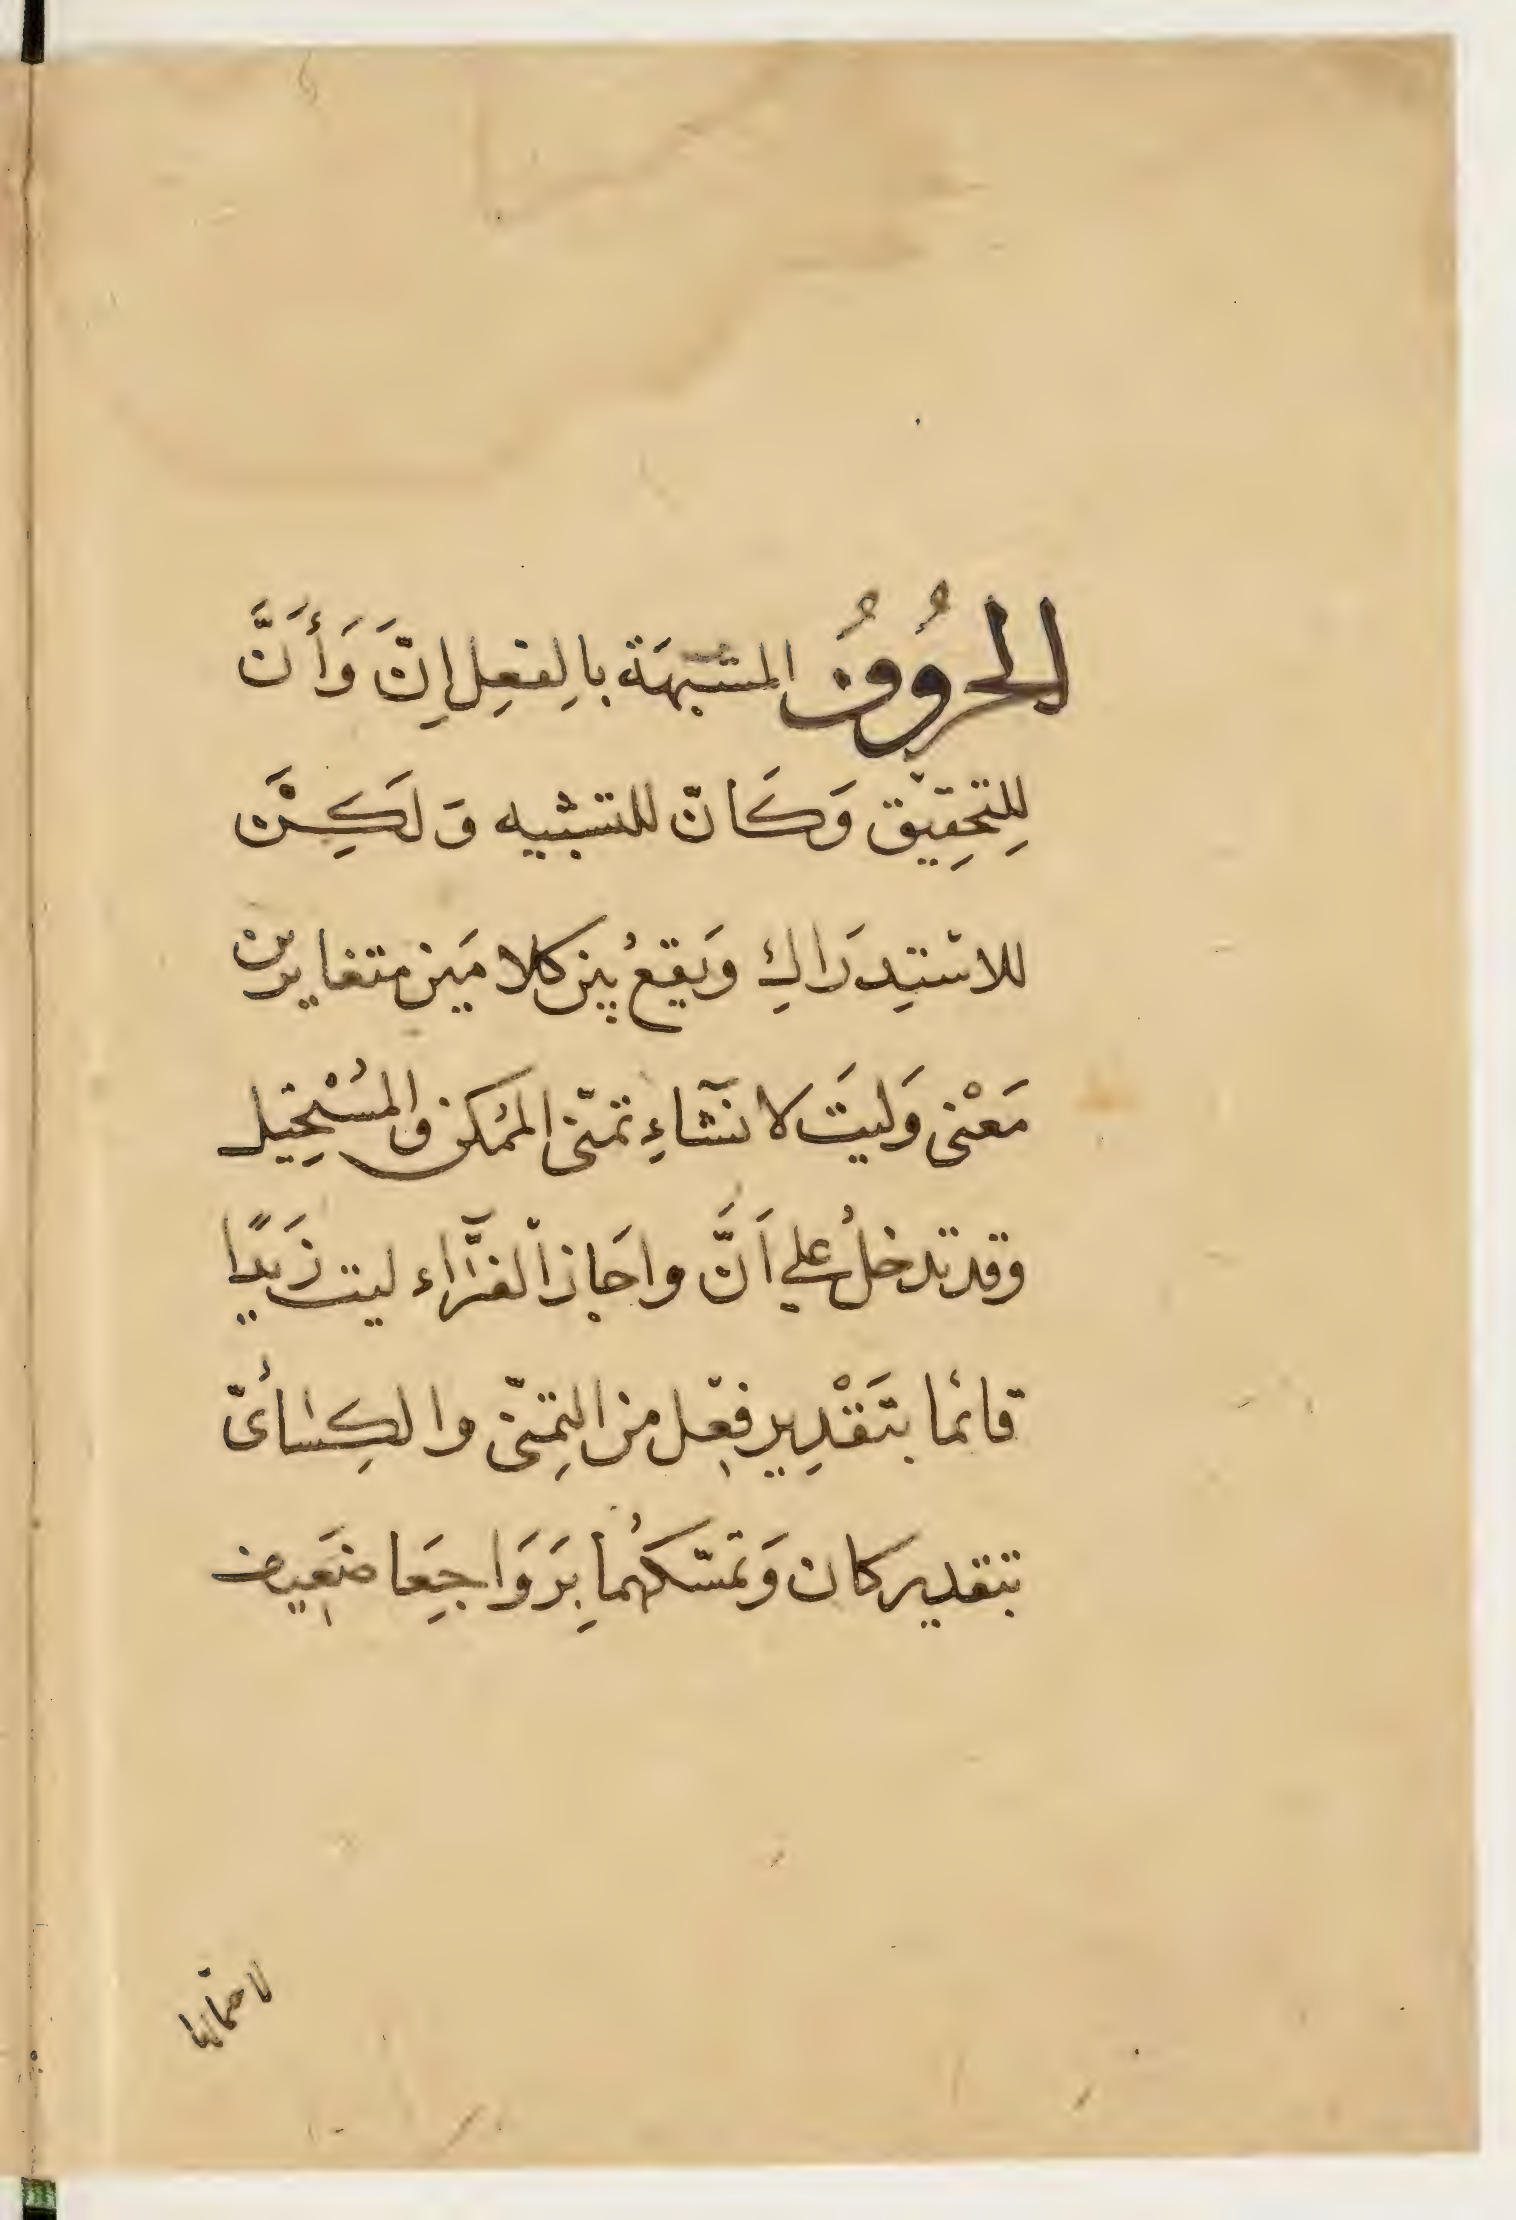 الحرُوفُ المشبهَة بالِفعِل اِنَّ وَأَنَّ
لِلتحِقيْق وَكَانّ للتشبيه وَلَكِنَّ
للاسْتِدرَاكِ وَيقعُ بين كلامَين متغايرين
مَعْنى وَليتَ لانشَآءِ تمنّى الممُكن والمسُتْحِيل
وقد تدخلُ على اَنَّ واجَازَ الفرَّآء ليت زَيدًا
قائما بتَقْدِير فِعْل من التِمنّى والكِسَائىّ
بتقدير كان وَتمسّكهُما بِرَوَاجِعَا ضَعِيف
لاحتمالها